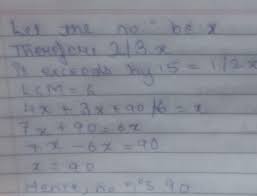 Let the no. be x
Therefore 2/3 x
It exceeds by 15 = 1/2 x
LCM = 6
4x + 3x + 90/6 = x
7x + 90 = 6x
7x - 6x = 90
x = 90
Hence, no is 90